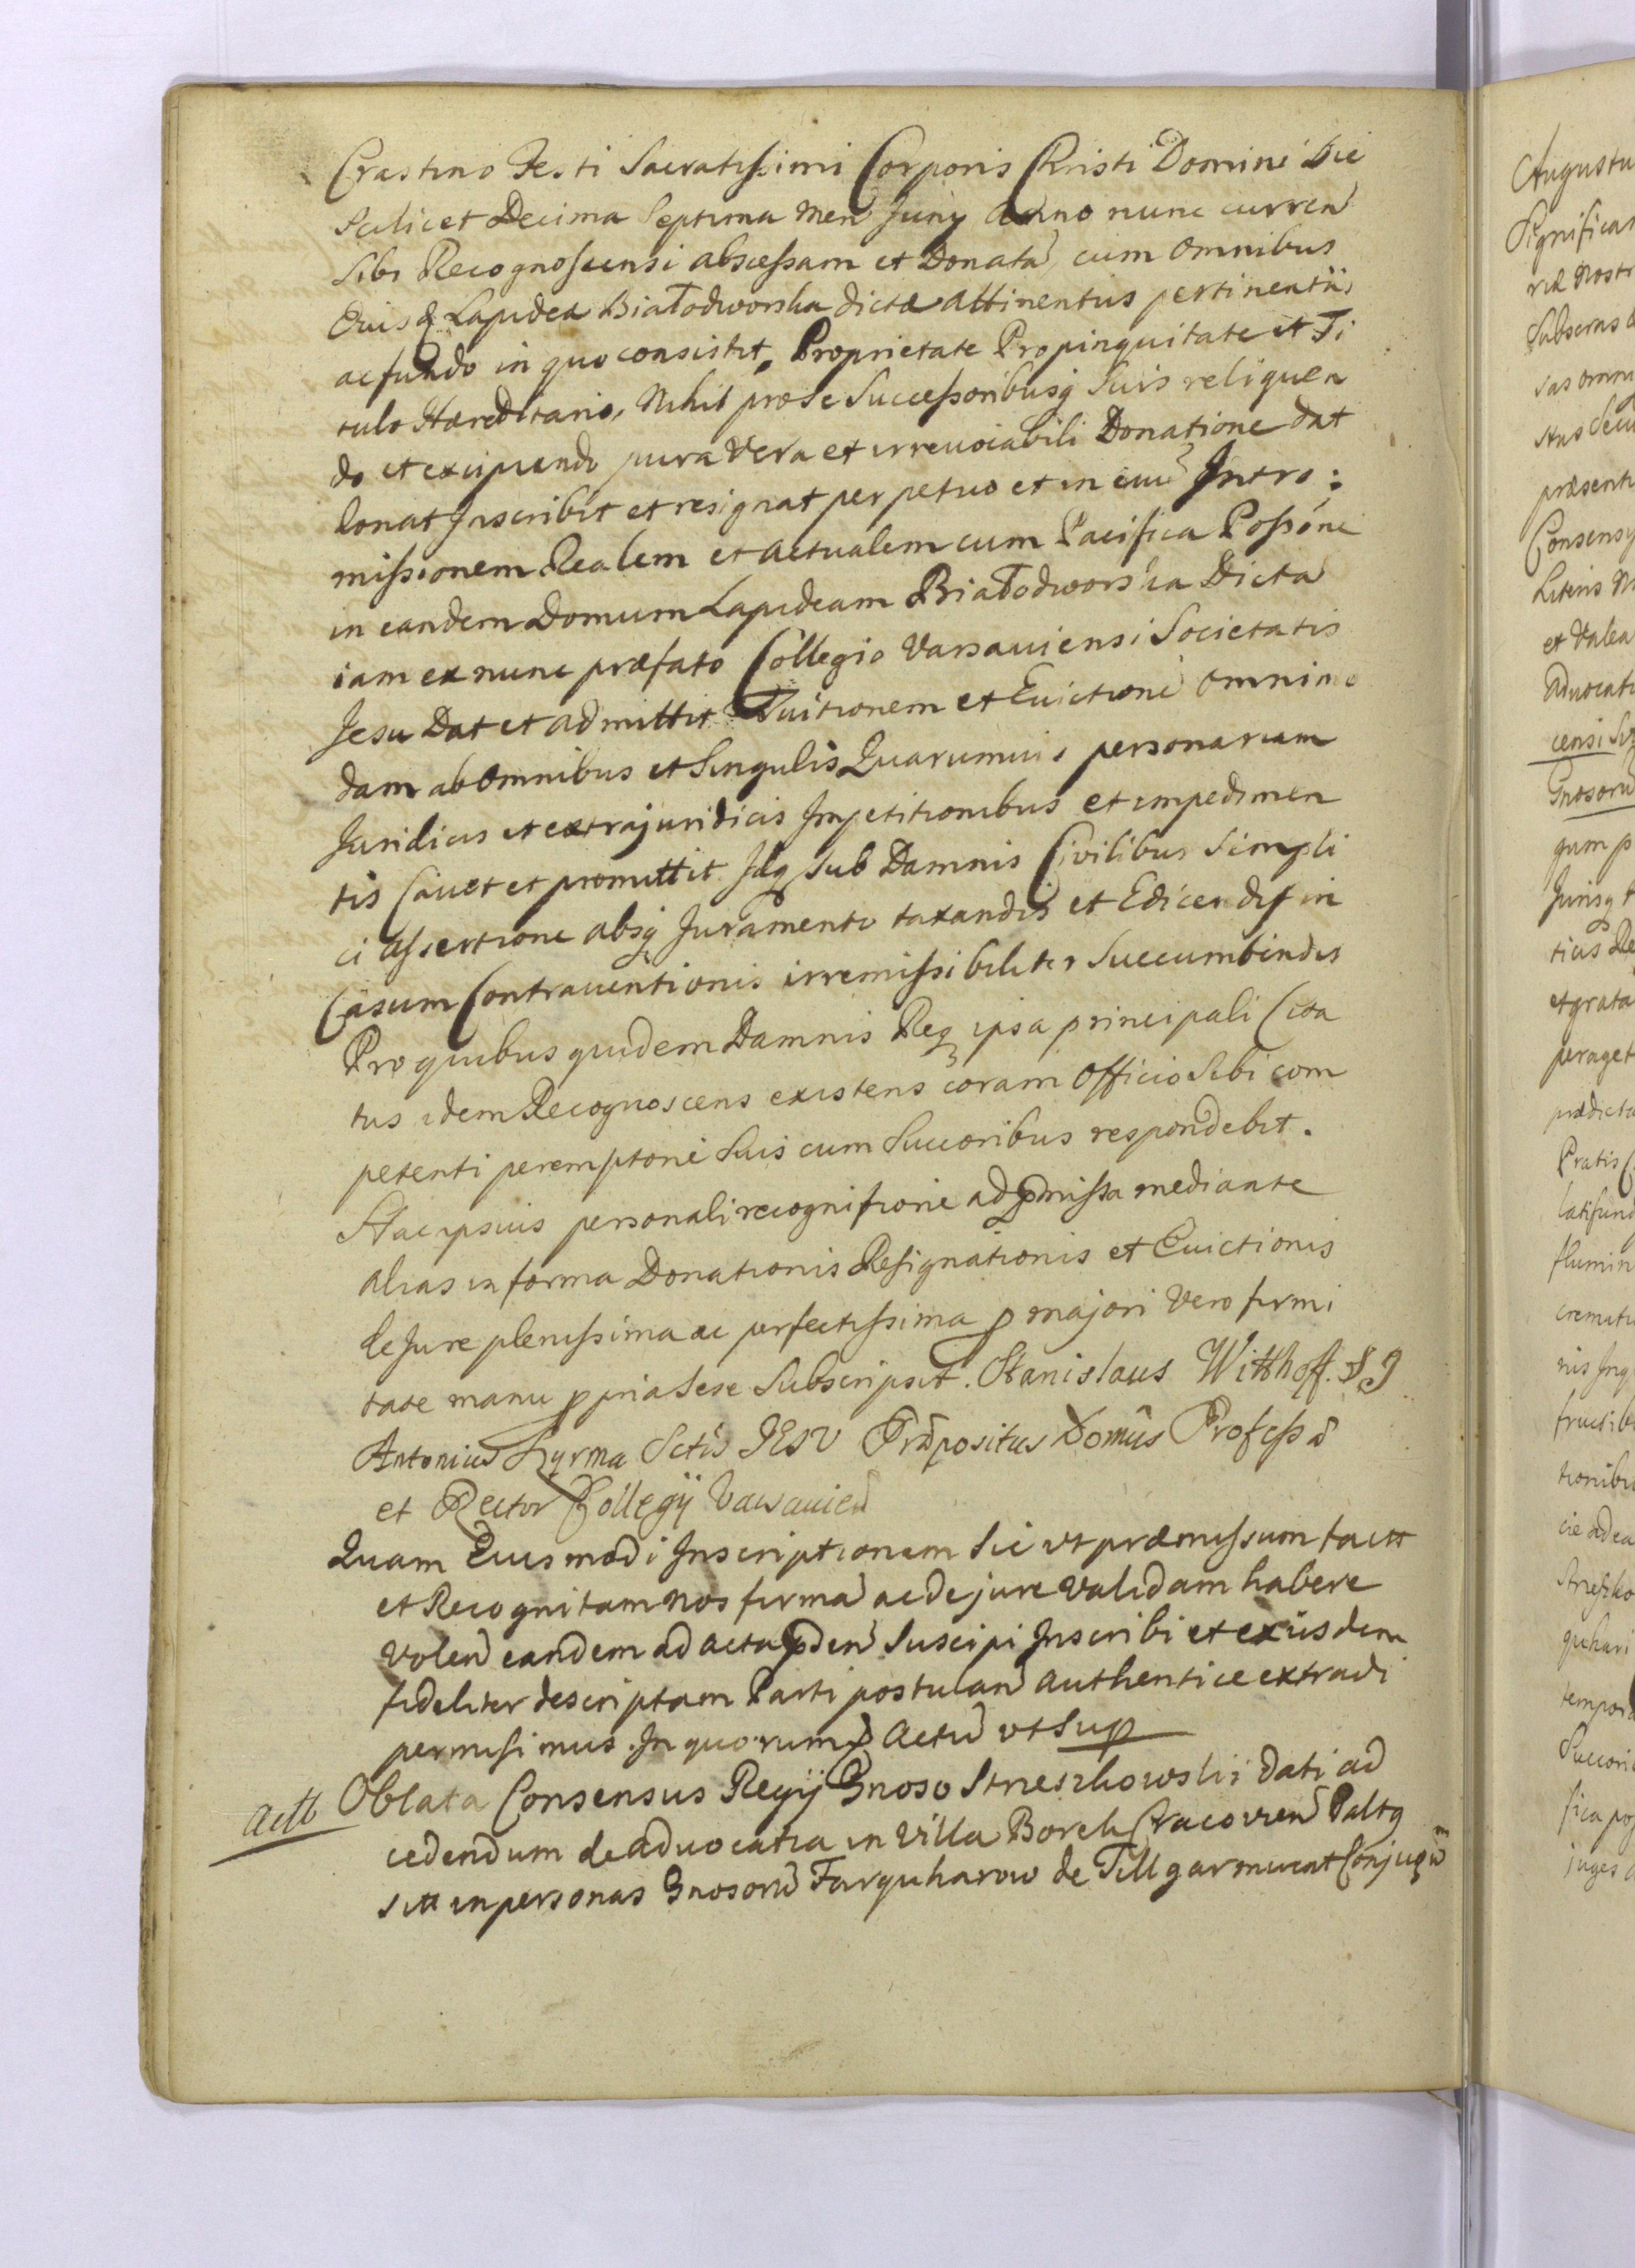 Crastino Festi Sacratissimi Corporis Christi Domini Die
Scilicet Decima Septima Men Juny Anno nunc curren
Sibi Recognoscensi abscessam et Donata cum omnibus
Eius q Lapidea Białodworska dictæ attinentiis pertinentiis
ac fundo in quo consistit, Proprietate Propinquitate et Ti
tulo Hæreditario, Nihil pro se Successoribusq suis relinquen
do et excipiendo pura vera et irrevocabili Donatione dat
donat Jnscribit et resignat perpetuo et in eiu Jntro:
missionem Realem et actualem cum Pacifica Possōne
in eandem Domum Lapideam Białodworska Dicta
iam ex nunc præfato Collegio Varsauiensi Societatis
Jesu Dat et admittit Tuitionem et Euictione omnimo
dam ab omnibus et Singulis Quarumuis personarum
Juridicis et extrajuridicis Jmpetitionibus et impedimen
tis Cauet et promittit Jdq sub Damnis Civilibus Simpli
ci assertione absq Juramento taxandis et Edicendis in
Casum Contrauentionis irremissibiliter Succumbendis
Pro quibus quidem Damnis Req ipsa principali Cita
tus idem Recognoscens existens coram officio Sibi com
petenti peremptorie Suis cum Succoribus respondebit.
Hac ipsius personali recognitione ad præmissa mediante
alias in forma Donationis Resignationis et Euictionis
de Jure plenissima ac perfectissima p majori vero firmi
tate manu ppria Sese Subscripsit. Stanislaus Witthoff. S J
Antonius Hyrma Sctis JESV Præpositus Domûs Professæ
et Rector Collegij Varsavien
Quam Eiusmodi Jnscriptionem Sic vt præmissum factt
et Recognitam nos firma ac de jure validam habere
volen eandem ad acta pden Suscipi Jnscribi et ex iisdem
fideliter descriptam Parti postulan authentice extradi
permisimus. Jn quorum Actu vt Sup
actt Oblata Consensus Regij Gnoso Strzeszkowskii dati ad
cedendum de aduocatia in Villa Borek Cracovien Paltq
sitt in personas Gnosoru Farquharow de Tillgarmucat Conjugu